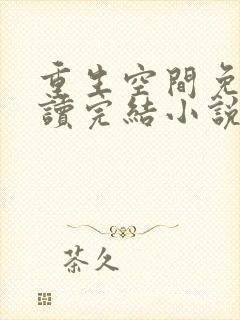 重生空間免
讀完結小說
茶久